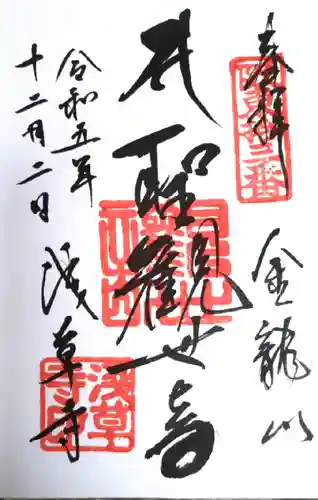 奉拝
坂東十三番
金龍山
聖観世音
令和五年
十二月二日
浅草寺